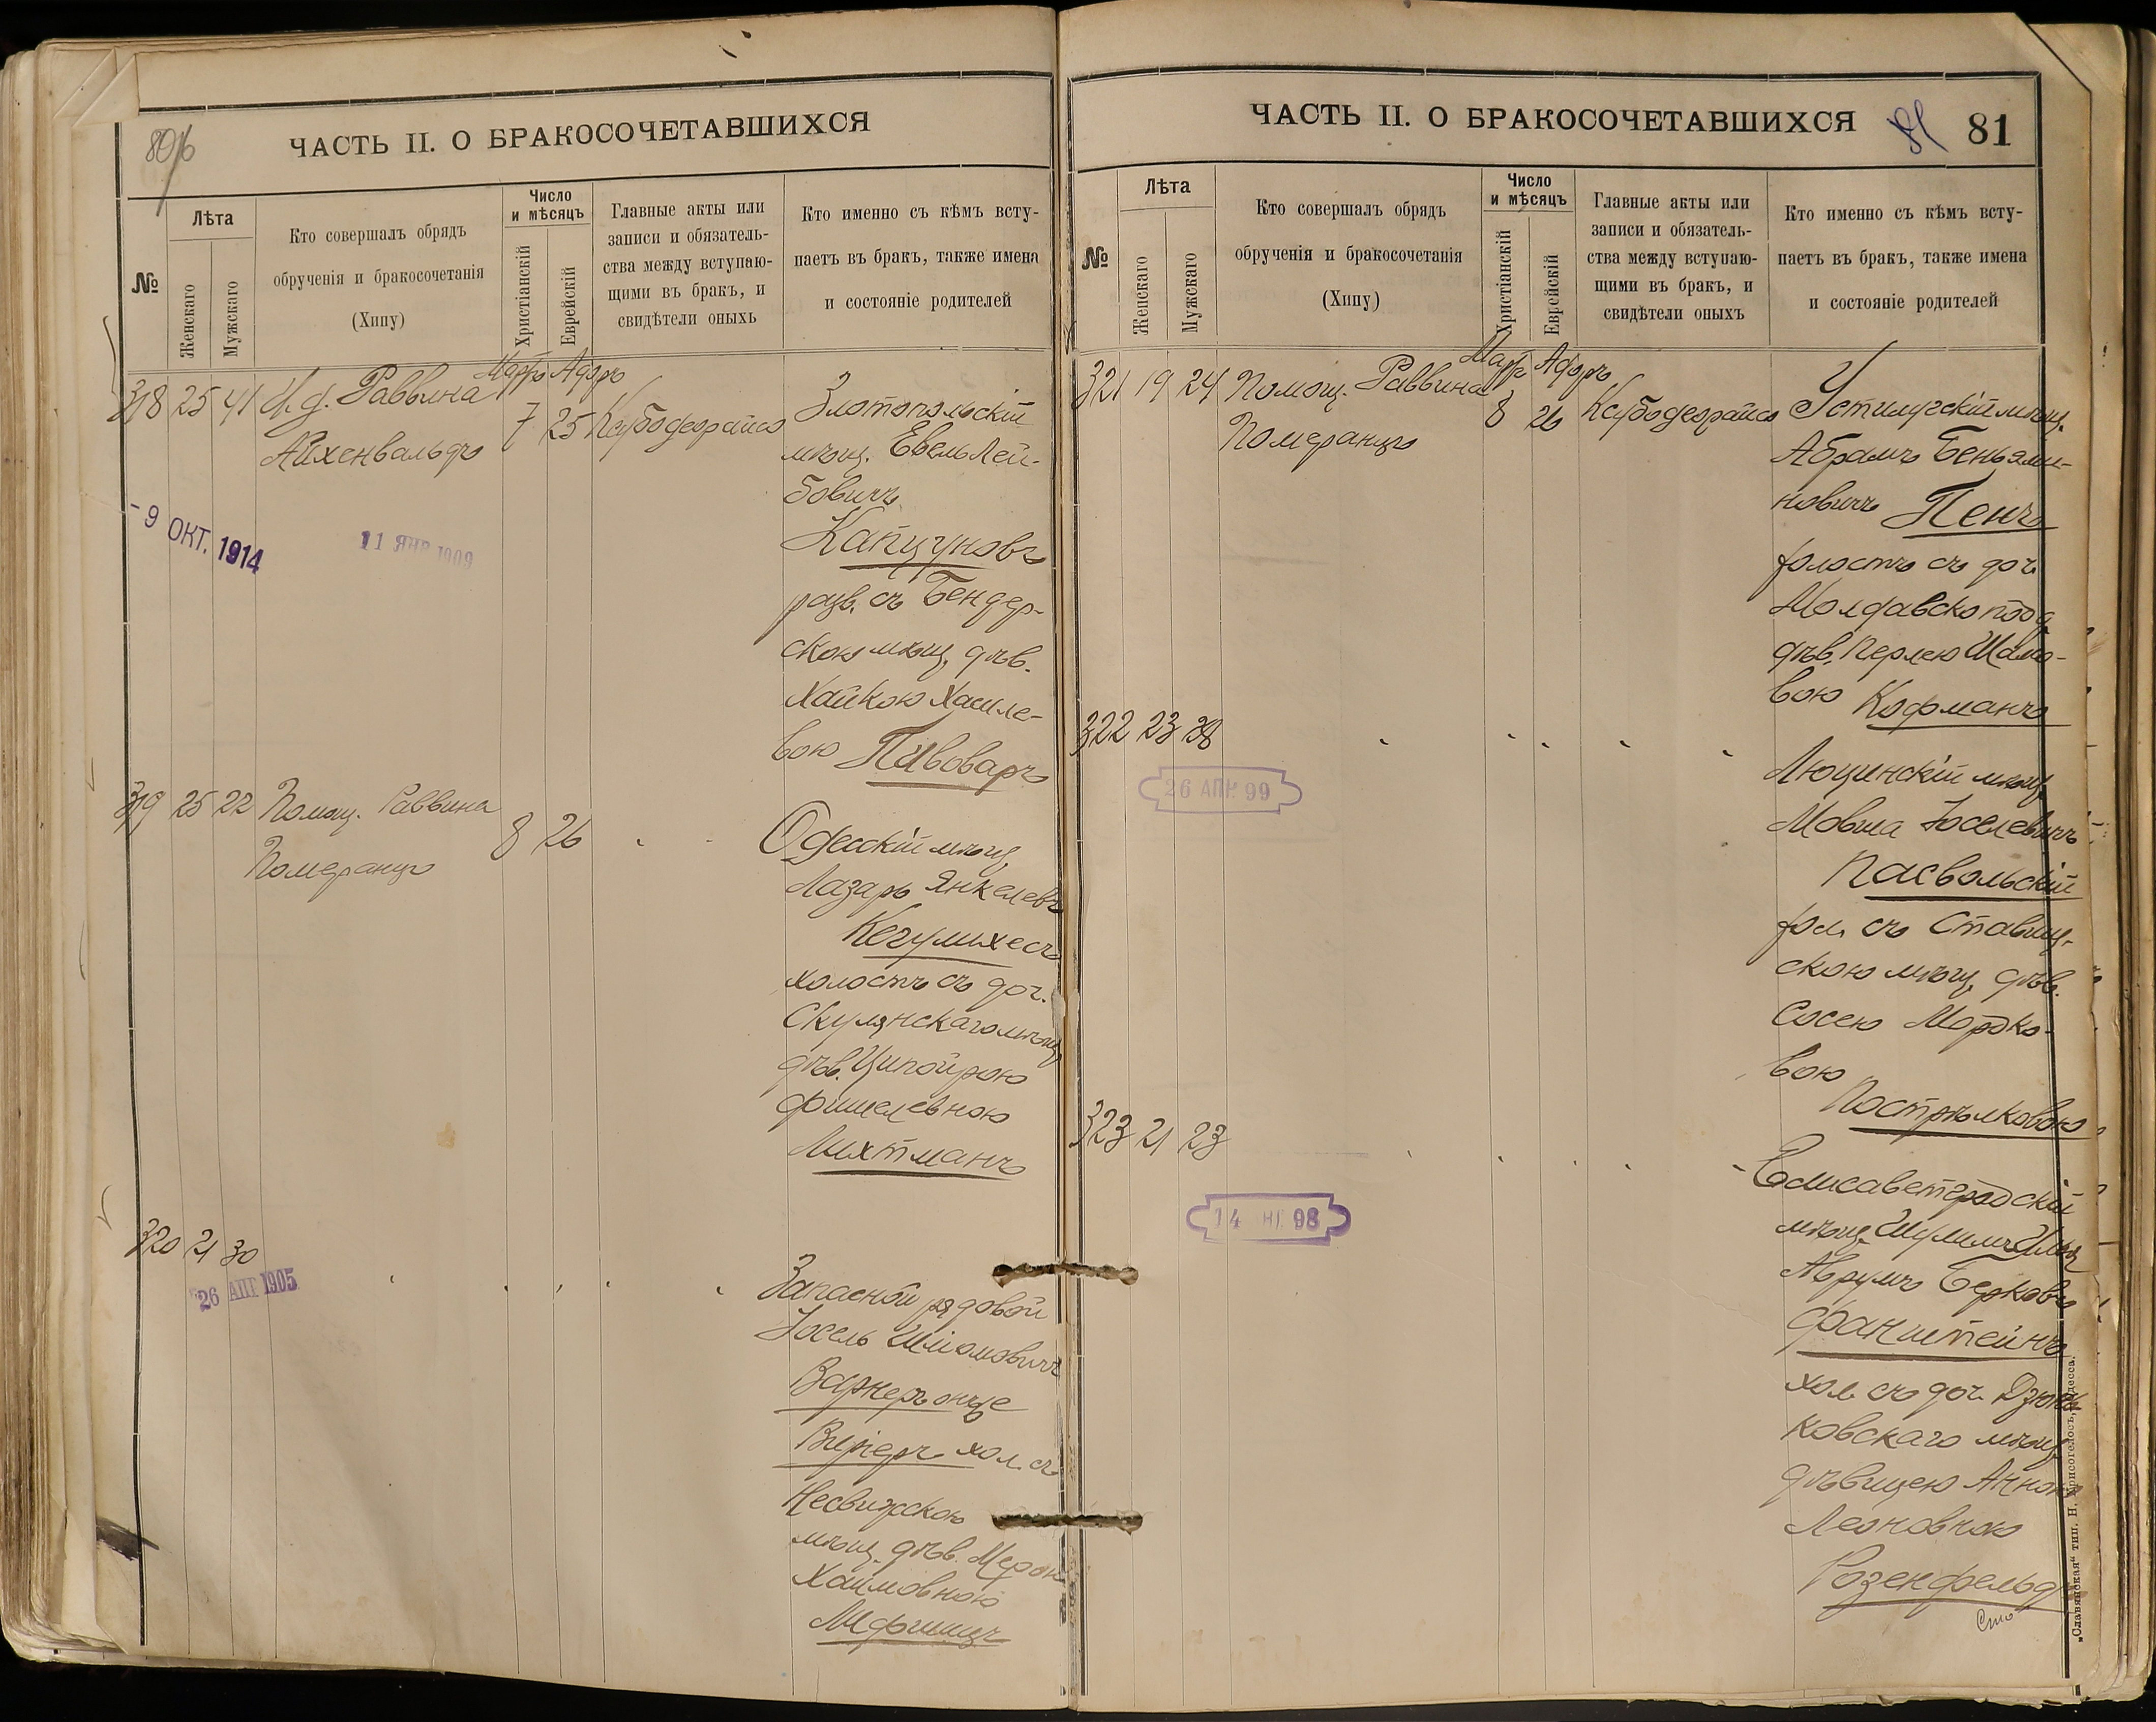 80/б
ЧАСТЬ II. О БРАКОСОЧЕТАВШИХСЯ
№
Лѣта
Женскаго
Мужскаго
Кто совершалъ обрядъ
обрученія и бракосочетанія
(Хипу)
Число
и мѣсяцъ
Христіанскій
Еврейскій
Главные акты или
записи и обязатель-
ства между вступаю-
щими въ бракъ, и
свидѣтели оныхъ
Кто именно съ кѣмъ всту-
паетъ въ бракъ, также имена
и состояніе родителей
318 25 41 И. д. Раввина
Айхенвальдъ
Мартъ Адаръ
7 25
Злотопольскій
мѣщ. Евель Лей-
бовичъ
Капцуновъ
разв. съ Бендер-
скою мѣщ. дѣв.
Хайкою Хаиле-
вою Пивоваръ
- 9 ОКТ. 1914
11 ЯНВ 1909
319 25 22 Помощ. Раввина
Померанцъ
8 26
Одесскій мѣщ.
Лазарь Янкелевъ
Кегулихесъ
холостъ съ доч.
Скулянскаго мѣщ.
дѣв. Ципойрою
Фишелевною
Лихтманъ
320 21 30
26 АПР 1905
Запасной рядовой
Іосель Шломовичъ
Варнеръ онъ же
Винеръ хол. съ
Несвижскою
мѣщ. дѣв.
Хаимовною
Лифшицъ
ЧАСТЬ II. О БРАКОСОЧЕТАВШИХСЯ
81 81
№
Лѣта
Женскаго
Мужскаго
Кто совершалъ обрядъ
обрученія и бракосочетанія
(Хипу)
Число
и мѣсяцъ
Христіанскій
Еврейскій
Главные акты или
записи и обязатель-
ства между вступаю-
щими въ бракъ, и
свидѣтели оныхъ
Кто именно съ кѣмъ всту-
паетъ въ бракъ, также имена
и состояніе родителей
321 19 24 Помощ. Раввина
Померанцъ
Мартъ Адаръ
8 26
Устилугскій мѣщ.
Абрамъ Беньями-
новичъ Пенъ
холостъ съ доч.
Молдавскопод.
дѣв. Перлею Шаио-
вою Кофманъ
322 23 28
26 АПР. 99
Люцинскій мѣщ.
Мовша Іоселевичъ
Пасвольскій
хол. съ Ставищ-
скою мѣщ. дѣв.
Сосею Мордко-
вою
Пострѣлковою
323 21 23
14 98
Елисаветградскій
мѣщ. Шулимъ
Аврумъ Берковъ
Фанштейнъ
хол. съ доч. Дзюнь
ковскаго мѣщ.
дѣвицею Анною
Леоновною
Розенфельдъ
„Славянская“ тип. Н. Хрисогелосъ, Одесса.